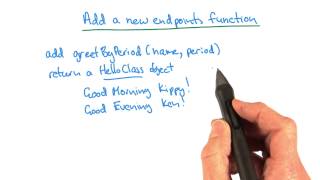 Add a new endpoints function
add greetByPeriod(name, period)
return a HelloClass object
Good Morning Kippy!
Good Evening Ken!